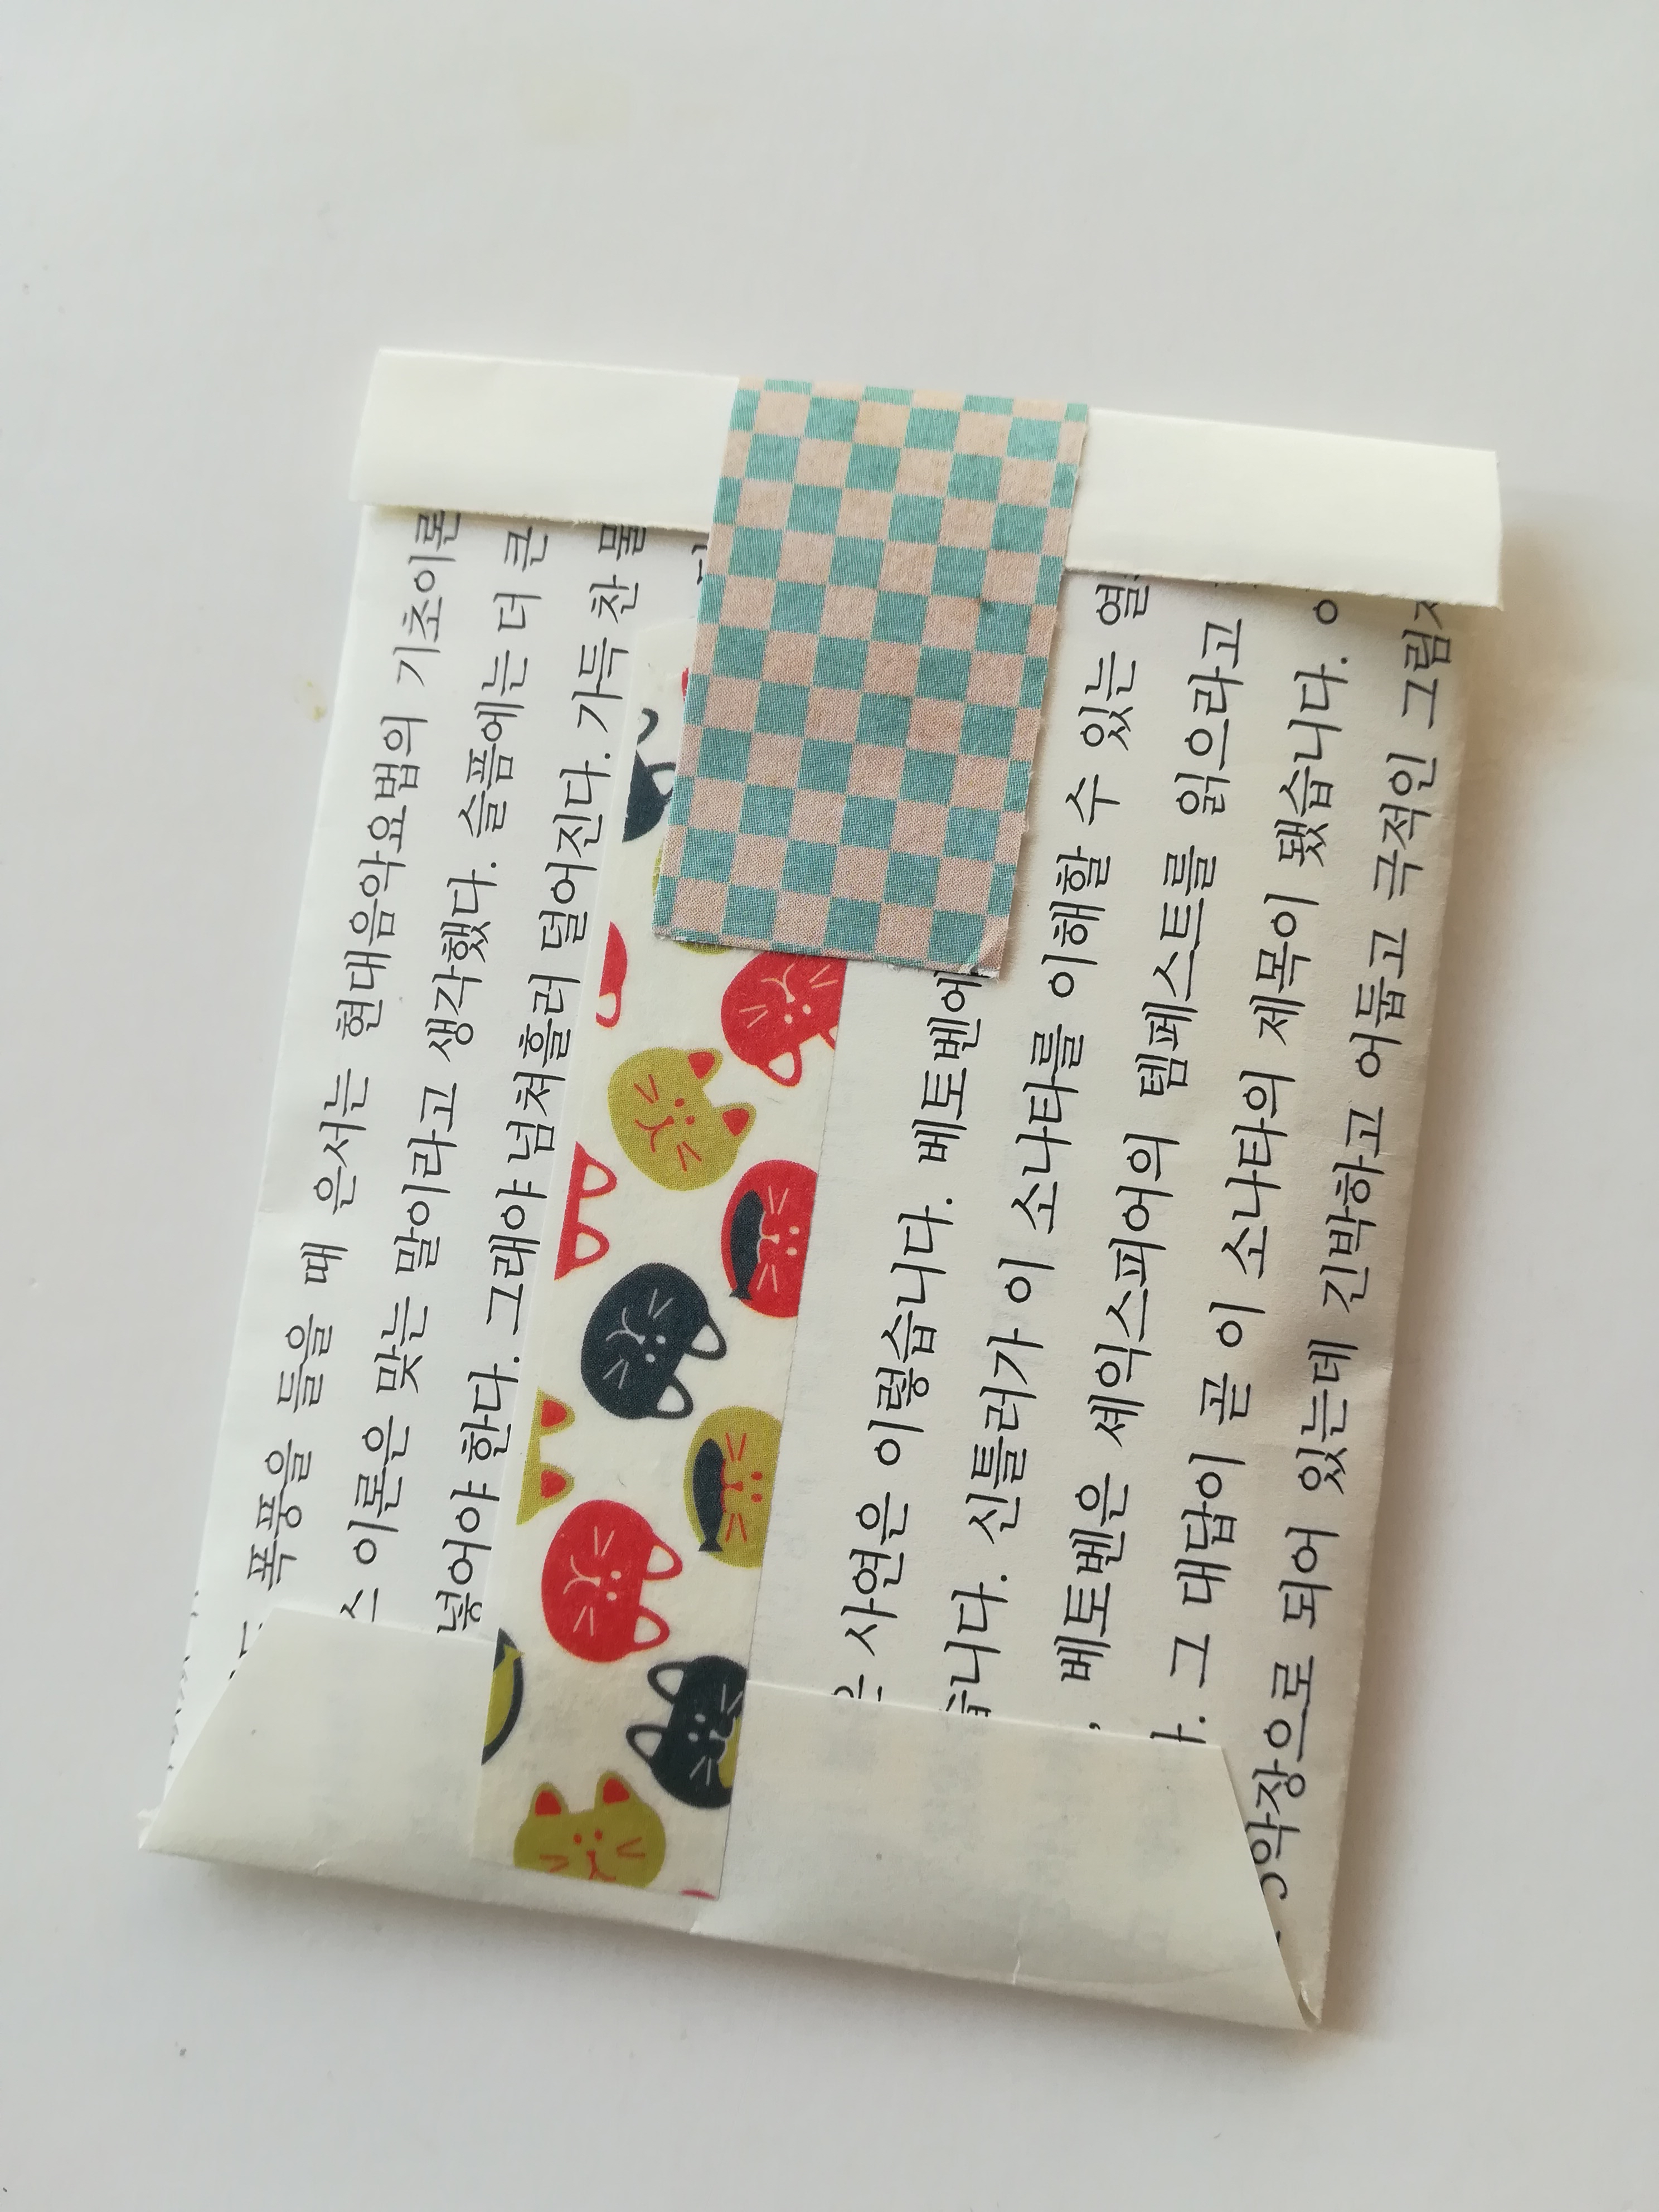 폭풍을 들을 때 은서는 현대음악요법의 기초이론
이론은 맞는 말이라고 생각했다. 슬픔에는 더 큰
넣어야 한다. 그래야 넘쳐흘러 덜어진다. 가득 찬 물
사연은 이렇습니다. 베토벤에
니다. 신틀러가 이 소나타를 이해할 수 있는 열
, 베토벤은 셰익스피어의 템페스트를 읽으라고
. 그 대답이 곧 이 소나타의 제목이 됐습니다.
3악장으로 되어 있는데 긴박하고 어둡고 극적인 그림